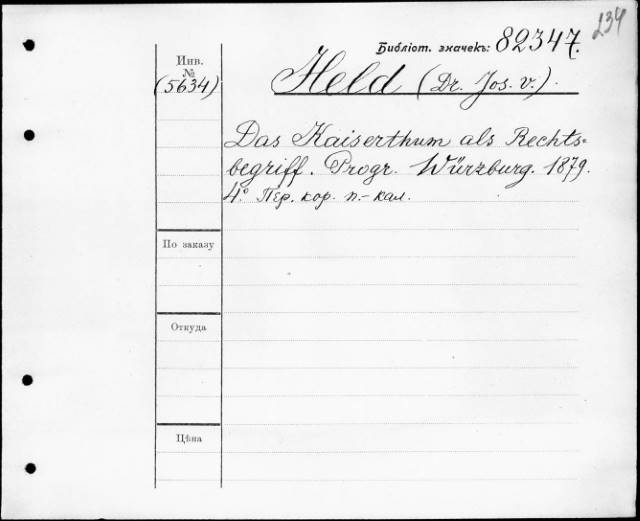 234
Библіот. значекъ: 82347.
Инв.
№
(5634)
Held (Dr. Jos. v.).
Das Kaiserthum als Rechts-
begriff. Progr. Würzburg. 1879.
4.° Пер. кор. п.-кал.
По заказу
Откуда
Цѣна